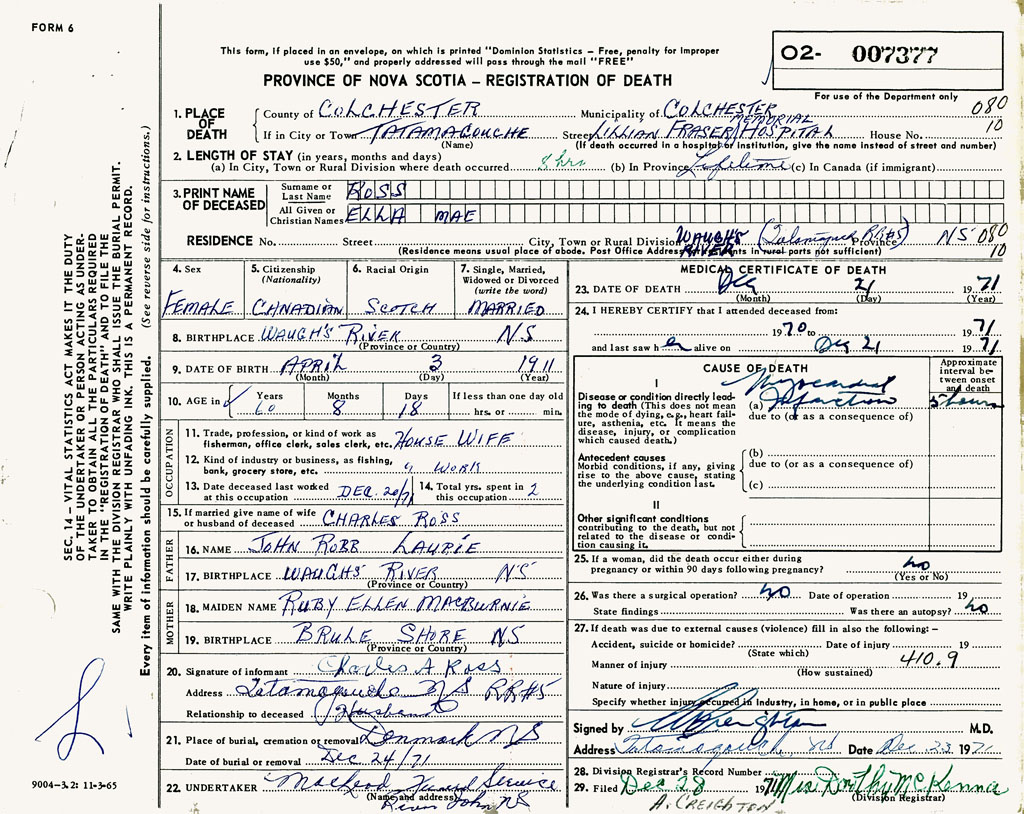 FORM 6
This form, if placed in an envelope, on which is printed "Dominion Statistics – Free, penalty for improper
use $50," and properly addressed will pass through the mail "FREE"
PROVINCE OF NOVA SCOTIA – REGISTRATION OF DEATH
02- 007377
For use of the Department only
080
10
1. PLACE OF DEATH
County of COLCHESTER Municipality of COLCHESTER
If in City or Town TATAMAGOUCHE Street LILLIAN FRASER MEMORIAL HOSPITAL House No.
(Name) (If death occurred in a hospital or institution, give the name instead of street and number)
2. LENGTH OF STAY (in years, months and days)
(a) In City, Town or Rural Division where death occurred 8 hrs (b) In Province Lifetime (c) In Canada (if immigrant)
3. PRINT NAME OF DECEASED
Surname or Last Name ROSS
All Given or Christian Names ELLA MAE
RESIDENCE No. Street City, Town or Rural Division WAUGHS RIVER (Tatamagouche RR#5) Province NS 080
(Residence means usual place of abode. Post Office Address in rural parts not sufficient) 10
4. Sex FEMALE
5. Citizenship (Nationality) CANADIAN
6. Racial Origin SCOTCH
7. Single, Married, Widowed or Divorced (write the word) MARRIED
8. BIRTHPLACE WAUGH'S RIVER NS
(Province or Country)
9. DATE OF BIRTH APRIL 3 1911
(Month) (Day) (Year)
10. AGE in Years 60 Months 8 Days 18 If less than one day old hrs. or min.
OCCUPATION
11. Trade, profession, or kind of work as fisherman, office clerk, sales clerk, etc. HOUSE WIFE
12. Kind of industry or business, as fishing, bank, grocery store, etc. WORK
13. Date deceased last worked at this occupation DEC. 20/71
14. Total yrs. spent in this occupation 2
15. If married give name of wife or husband of deceased CHARLES ROSS
FATHER
16. NAME JOHN ROBB LAURIE
17. BIRTHPLACE WAUGHS RIVER NS
(Province or Country)
MOTHER
18. MAIDEN NAME RUBY ELLEN MACBURNIE
19. BIRTHPLACE BRULE SHORE NS
(Province or Country)
20. Signature of informant Charles A Ross
Address Tatamagouche NS RR#5
Relationship to deceased Husband
21. Place of burial, cremation or removal Denmark NS
Date of burial or removal Dec 24/71
22. UNDERTAKER MacLeod Funeral Service
(Name and address) River John NS
MEDICAL CERTIFICATE OF DEATH
23. DATE OF DEATH Dec 21 1971
(Month) (Day) (Year)
24. I HEREBY CERTIFY that I attended deceased from:
1970 to 1971
and last saw her alive on Dec 21 1971
CAUSE OF DEATH
Approximate interval between onset and death
I
Disease or condition directly leading to death (This does not mean the mode of dying, e.g., heart failure, asthenia, etc. It means the disease, injury, or complication which caused death.)
(a) Myocardial Infarction 5 hours
due to (or as a consequence of)
Antecedent causes
Morbid conditions, if any, giving rise to the above cause, stating the underlying condition last.
(b)
due to (or as a consequence of)
(c)
II
Other significant conditions
contributing to the death, but not related to the disease or condition causing it.
25. If a woman, did the death occur either during pregnancy or within 90 days following pregnancy? no
(Yes or No)
26. Was there a surgical operation? no Date of operation 19
State findings Was there an autopsy? no
27. If death was due to external causes (violence) fill in also the following: –
Accident, suicide or homicide? Date of injury 19
(State which)
Manner of injury 410.9
(How sustained)
Nature of injury
Specify whether injury occurred in industry, in home, or in public place
Signed by M.D.
Address Tatamagouche NS Date Dec 23 1971
28. Division Registrar's Record Number
29. Filed Dec 28 1971 Miss Dorothy McKenna
(Division Registrar)
A. CREIGHTON
SEC. 14 – VITAL STATISTICS ACT MAKES IT THE DUTY
OF THE UNDERTAKER OR PERSON ACTING AS UNDER-
TAKER TO OBTAIN ALL THE PARTICULARS REQUIRED
IN THE "REGISTRATION OF DEATH" AND TO FILE THE
SAME WITH THE DIVISION REGISTRAR WHO SHALL ISSUE THE BURIAL PERMIT.
WRITE PLAINLY WITH UNFADING INK. THIS IS A PERMANENT RECORD.
Every item of information should be carefully supplied. (See reverse side for instructions.)
9004-3.2: 11-3-65